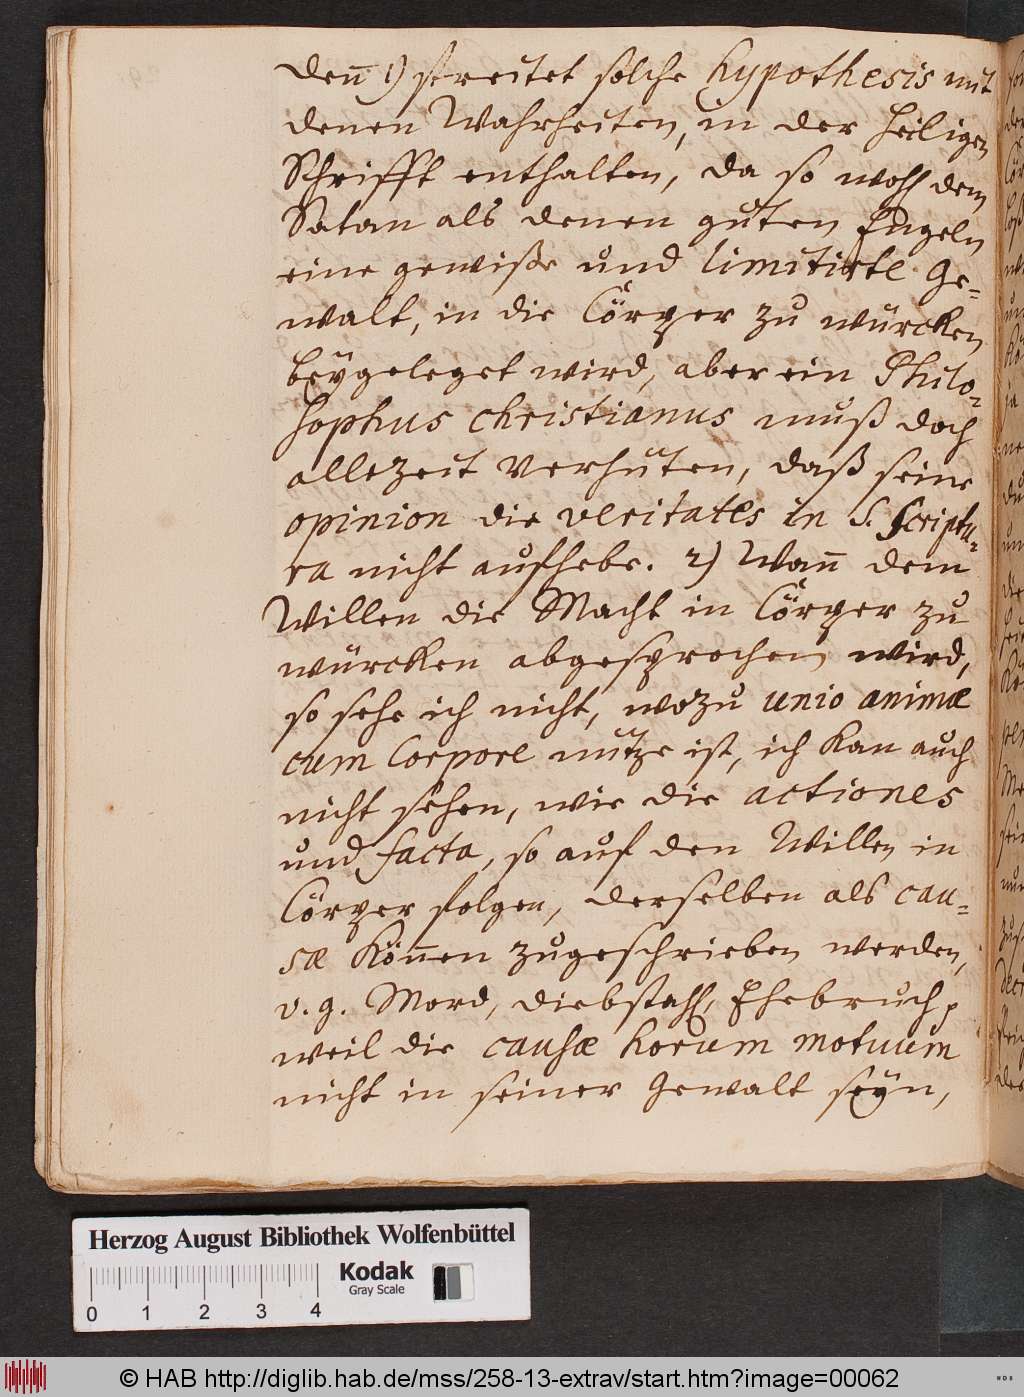 den̄ 1) streitet solche hypothesis mit
denen Wahrheiten, in der Heiligen
Schrifft enthalten, da so wohl dem
Satan als denen guten Engeln
eine gewiße und limitirte Ge=
walt, in die Cörper zu würcken
beÿgeleget wird, aber ein Philo=
sophus christianus muß doch
allezeit verhüten, daß seine
opinion die veritates in S. Scriptu=
ra nicht aufhebe. 2) Wañ dem
Willen die Macht in Cörper zu
würcken abgesprochen wird,
so sehe ich nicht, wozu unio animæ
cum Corpore nütze ist, ich kan auch
nicht sehen, wie die actiones
und facta, so auf den Willen in
Cörper folgen, derselben als cau=
sæ Kön̄en zugeschrieben werden,
v. g. Mord, diebstahl, Ehebruch,
weil die causæ horum motuum
nicht in seiner Gewalt seÿn,
Herzog August Bibliothek Wolfenbüttel
Kodak
Gray Scale
0 1 2 3 4
© HAB http://diglib.hab.de/mss/258-13-extrav/start.htm?image=00062